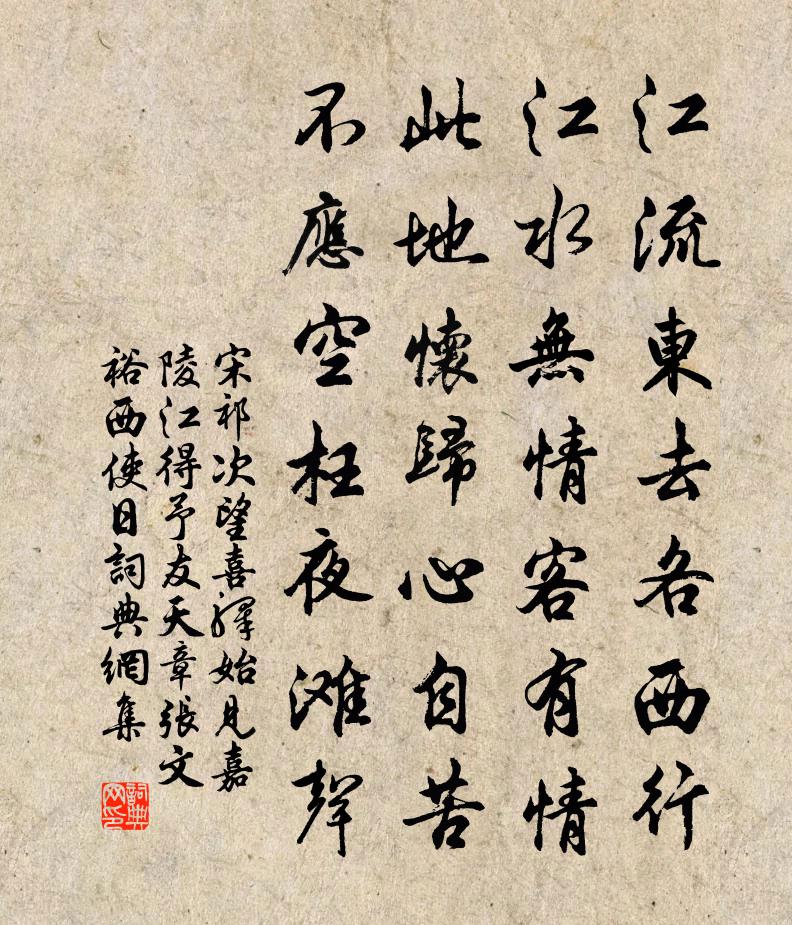 江流東去各西行
江水無情客有情
此地懷歸心自苦
不應空枉夜滩聲
宋祁次望喜驛始見嘉
陵江得予友天章張文
裕西使日詞典網集
詞典网印